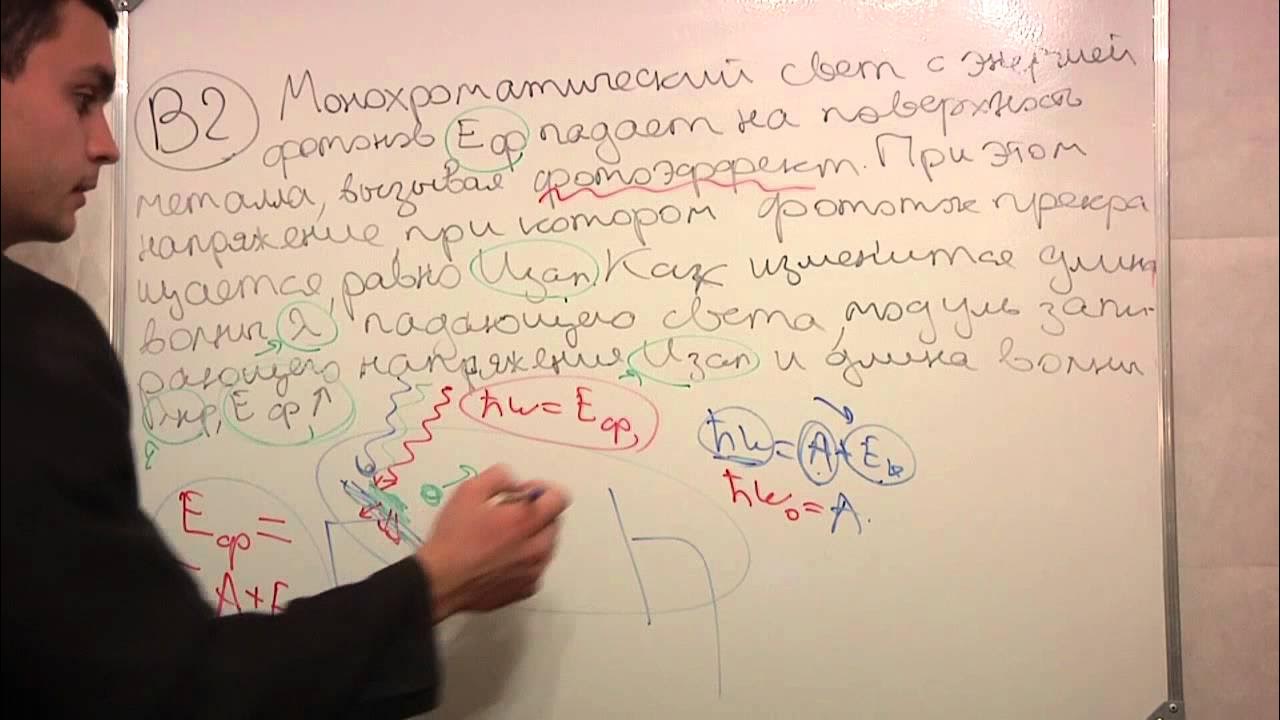 B2 Монохроматический свет с энергией
фотонов Eф падает на поверхность
металла, вызывая фотоэффект. При этом
напряжение при котором фототок прекра
щается, равно Uзап. Как изменится длина
волны λ падающего света, модуль запи-
рающего напряжения Uзап и длина волны
λкр, Eф↑
ħω = Eф,
ħω = A + Eк
ħω₀ = A.
Eф =
A + E